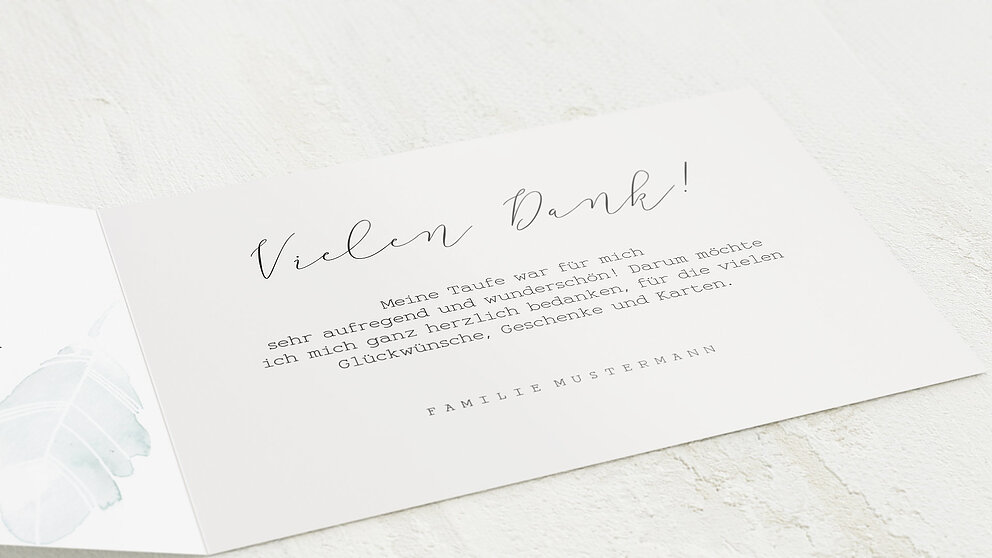 Vielen Dank!
Meine Taufe war für mich
sehr aufregend und wunderschön! Darum möchte
ich mich ganz herzlich bedanken, für die vielen
Glückwünsche, Geschenke und Karten.
FAMILIE MUSTERMANN